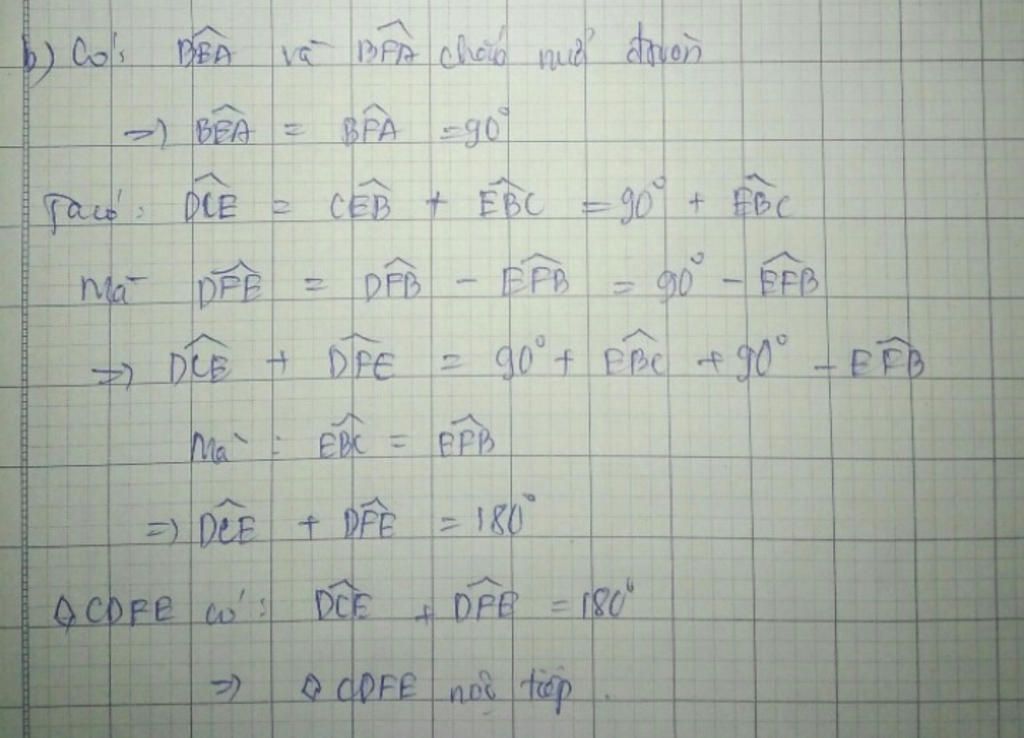 b) Có: \widehat{BEA} và \widehat{BFA} chắn nửa đtròn
=> \widehat{BEA} = \widehat{BFA} = 90°
Ta có: \widehat{DCE} = \widehat{CEB} + \widehat{EBC} = 90° + \widehat{EBC}
Mà \widehat{DFE} = \widehat{DFB} - \widehat{EFB} = 90° - \widehat{EFB}
=> \widehat{DCE} + \widehat{DFE} = 90° + \widehat{EBC} + 90° - \widehat{EFB}
Mà: \widehat{EBC} = \widehat{EFB}
=> \widehat{DCE} + \widehat{DFE} = 180°
◊CDFE có: \widehat{DCE} + \widehat{DFE} = 180°
=> ◊CDFE nội tiếp.